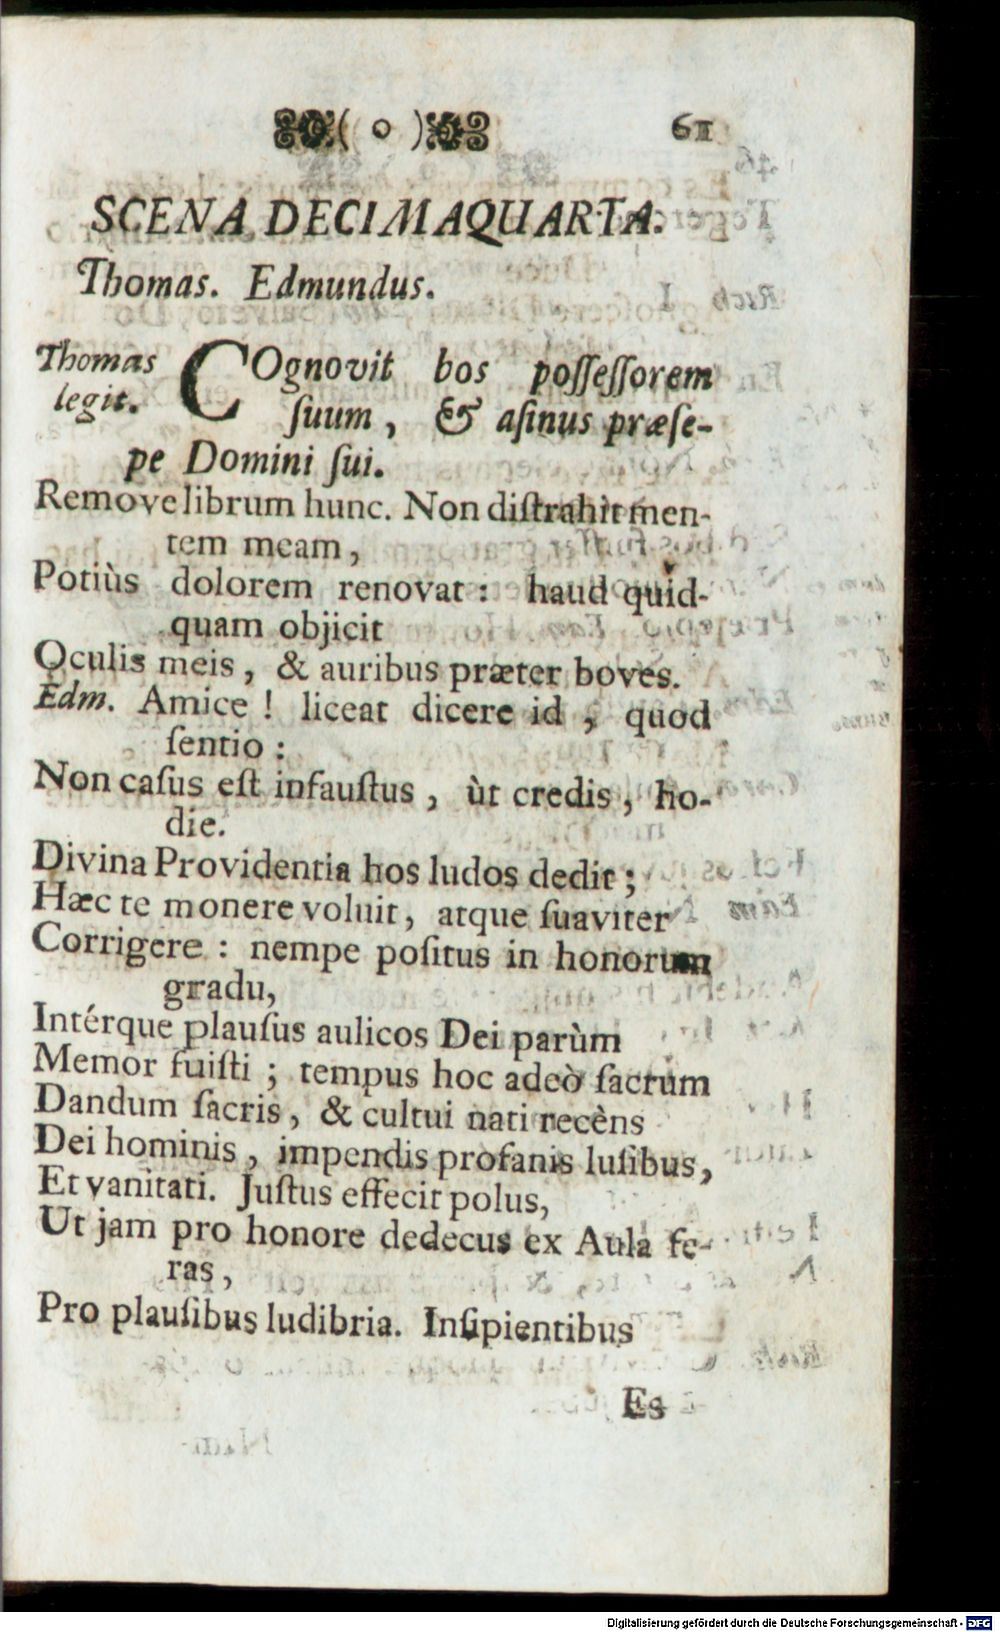 ( o ) 61
SCENA DECIMAQUARTA.
Thomas. Edmundus.
Thomas legit. COgnovit bos poſſeſſorem
ſuum, & aſinus præſe-
pe Domini ſui.
Remove librum hunc. Non diſtrahit men-
tem meam,
Potiùs dolorem renovat : haud quid-
quam objicit
Oculis meis, & auribus præter boves.
Edm. Amice ! liceat dicere id, quod
ſentio :
Non caſus eſt infauſtus, ùt credis, ho-
die.
Divina Providentia hos ludos dedit ;
Hæc te monere voluit, atque ſuaviter
Corrigere : nempe poſitus in honorum
gradu,
Intérque plauſus aulicos Dei parùm
Memor fuiſti ; tempus hoc adeò ſacrum
Dandum ſacris, & cultui nati recèns
Dei hominis, impendis profanis luſibus,
Et vanitati. Juſtus effecit polus,
Ut jam pro honore dedecus ex Aula fe-
ras,
Pro plauſibus ludibria. Inſipientibus
Es
Digitalisierung gefördert durch die Deutsche Forschungsgemeinschaft - DFG